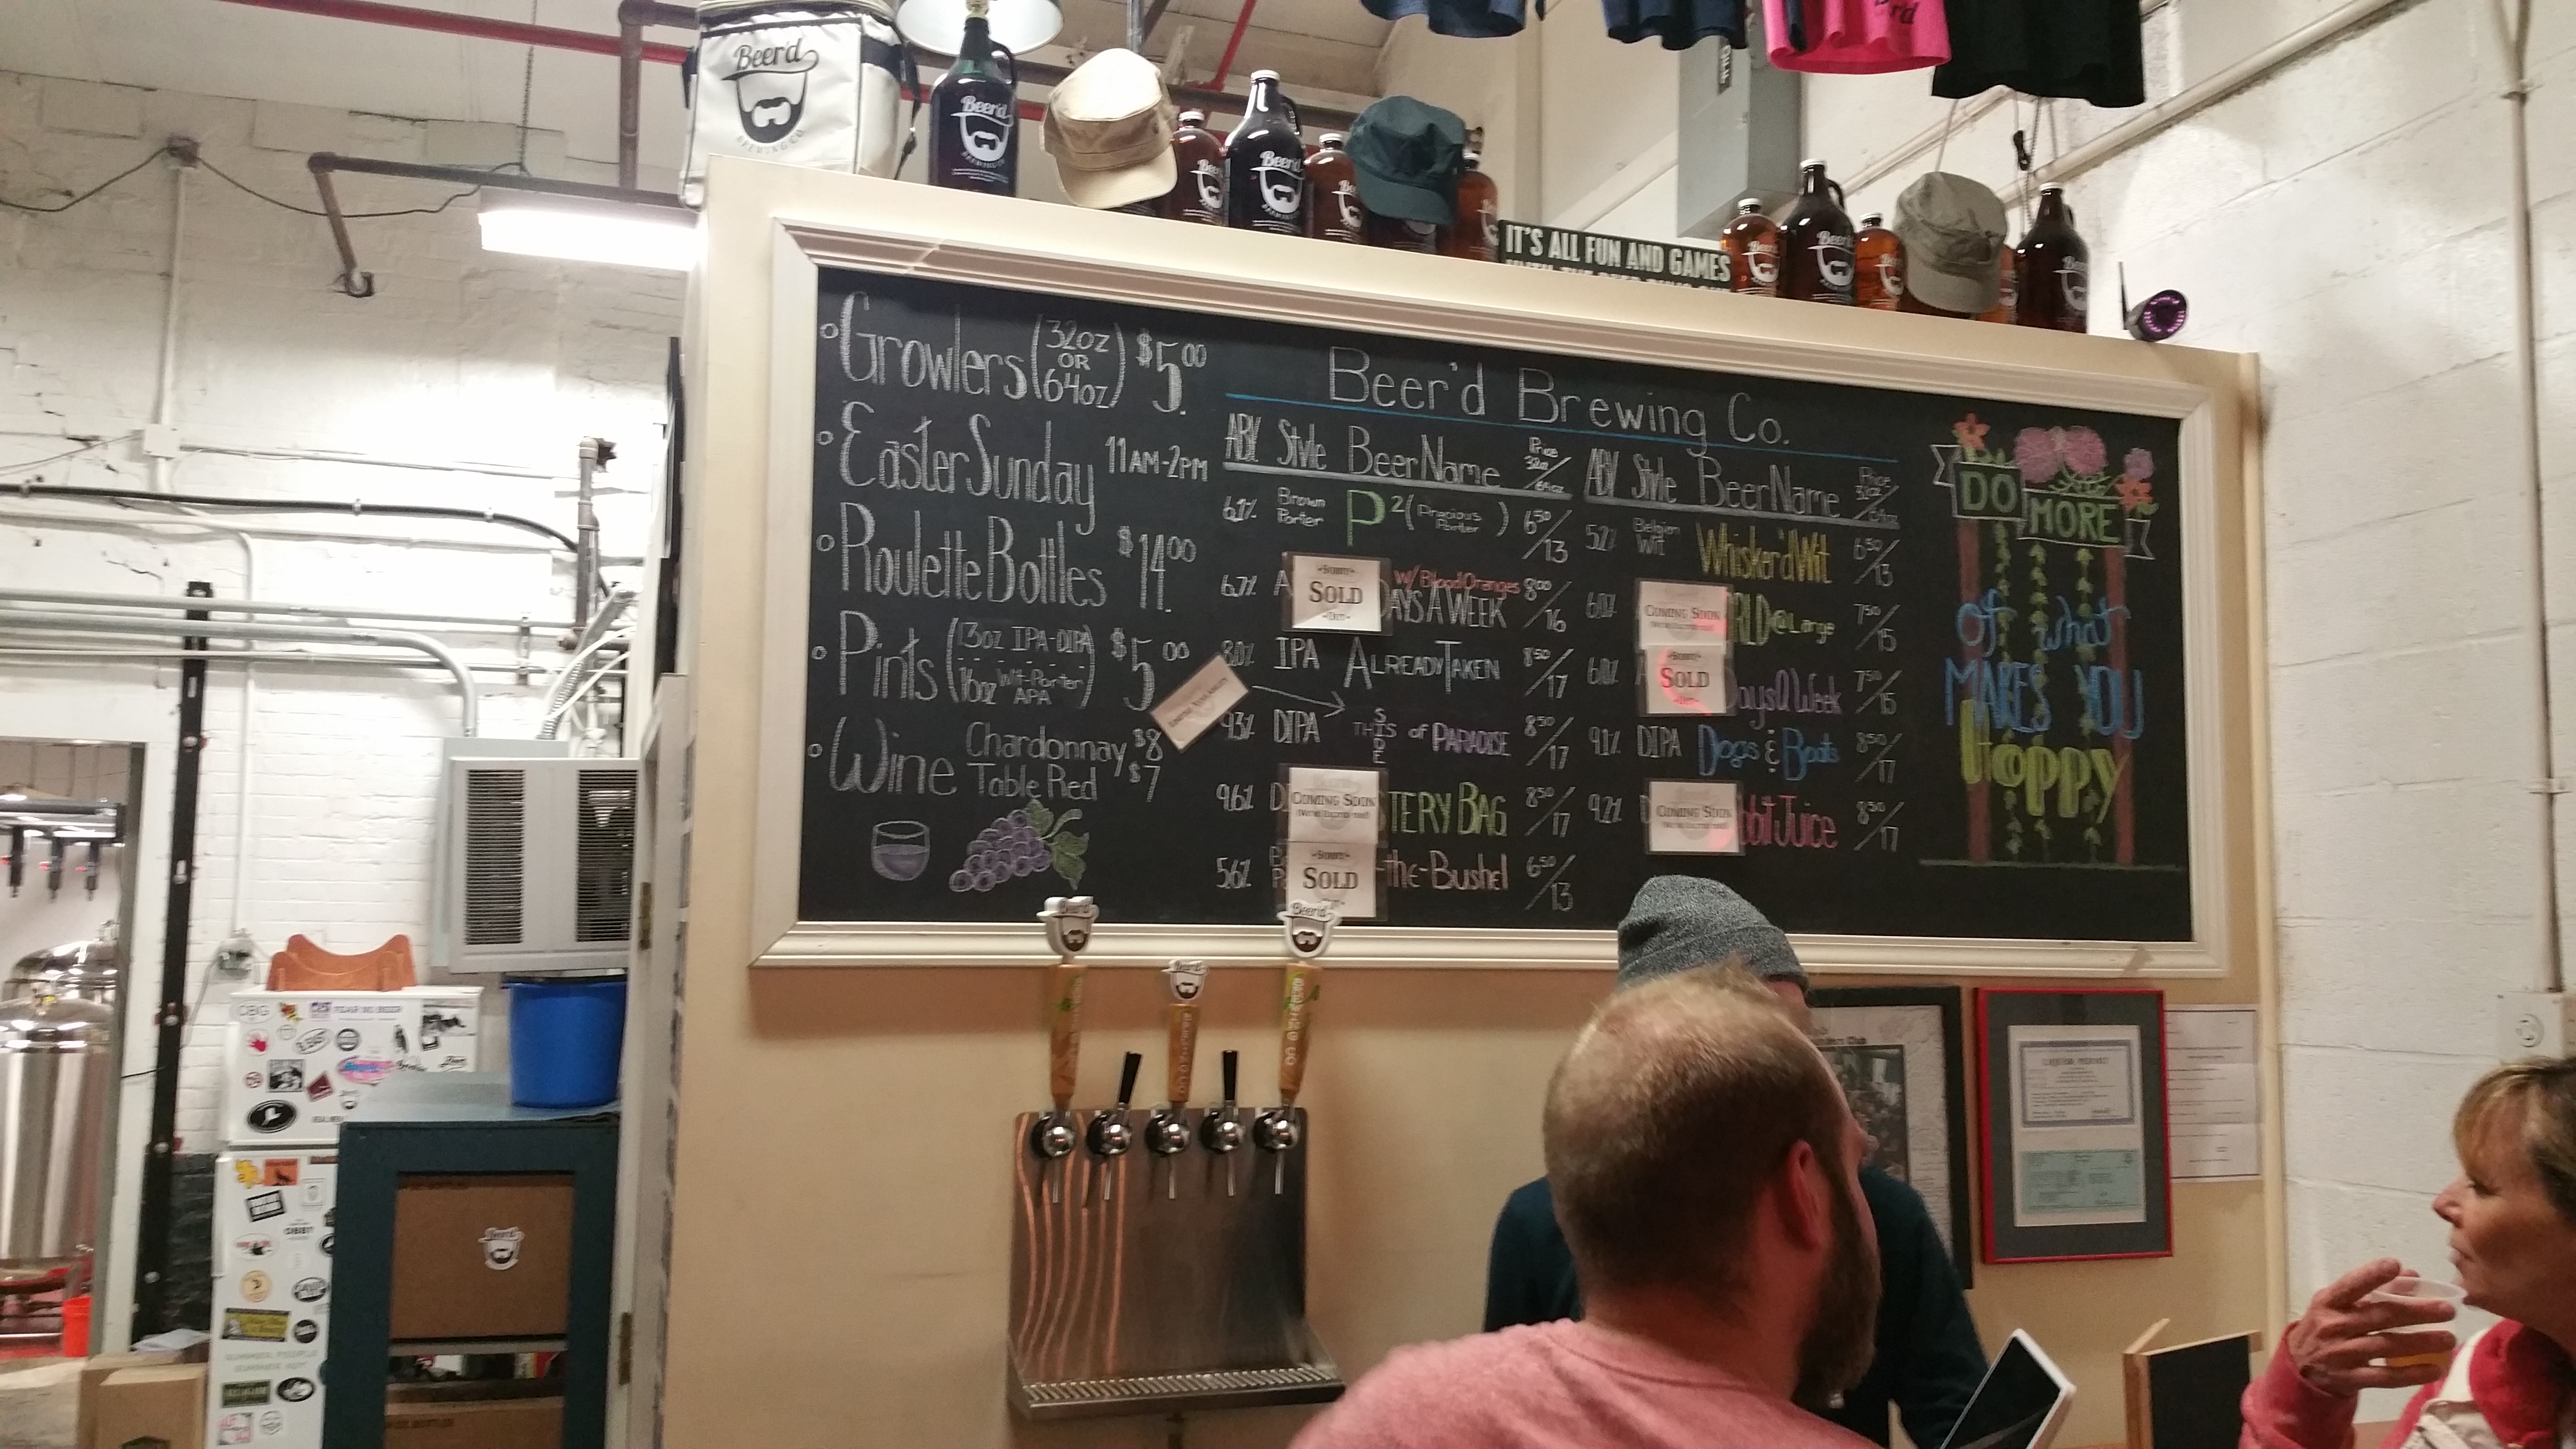 Beer'd
BREWING CO.
Beer'd
Beer'd
IT'S ALL FUN AND GAMES
Growlers (32oz OR 64oz) $5.00
Easter Sunday 11AM-2PM
Roulette Bottles $14.00
Pints (13oz IPA-DIPA) $5.00
16oz Wit-Porter APA
Wine Chardonnay $8
Table Red $7
Beer'd Brewing Co.
ABV. Style Beer Name Price 32oz/64oz
6.1% Brown Porter P2 (Precious Porter) 6.50/13
6.7% A SORRY SOLD OUT w/ Blood Oranges DAYS A WEEK 8.00/16
8.0% IPA Already Taken 8.50/17
9.3% DIPA THIS SIDE of PARADISE 8.50/17
9.6% COMING SOON TERY BAG 8.50/17
5.6% SORRY SOLD -the-Bushel 6.50/13
ABV. Style Beer Name Price 32oz/64oz
5.2% Belgian Wit Whisker'd Wit 6.50/13
6.0% COMING SOON RLD @ Large 7.50/15
6.0% SORRY SOLD OUT Days a Week 7.50/15
9.1% DIPA Dogs & Boats 8.50/17
9.2% COMING SOON bbit Juice 8.50/17
DO
MORE
of what
MAKES YOU
Hoppy
Beer'd
Beer'd
Beer'd
FEAR NO BEER
Beer'd
SUMMER PEOPLE
SUMMER NOT